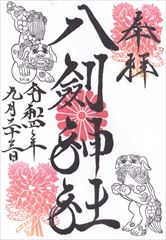 奉拝
八劔神社
令和四年
九月二十三日